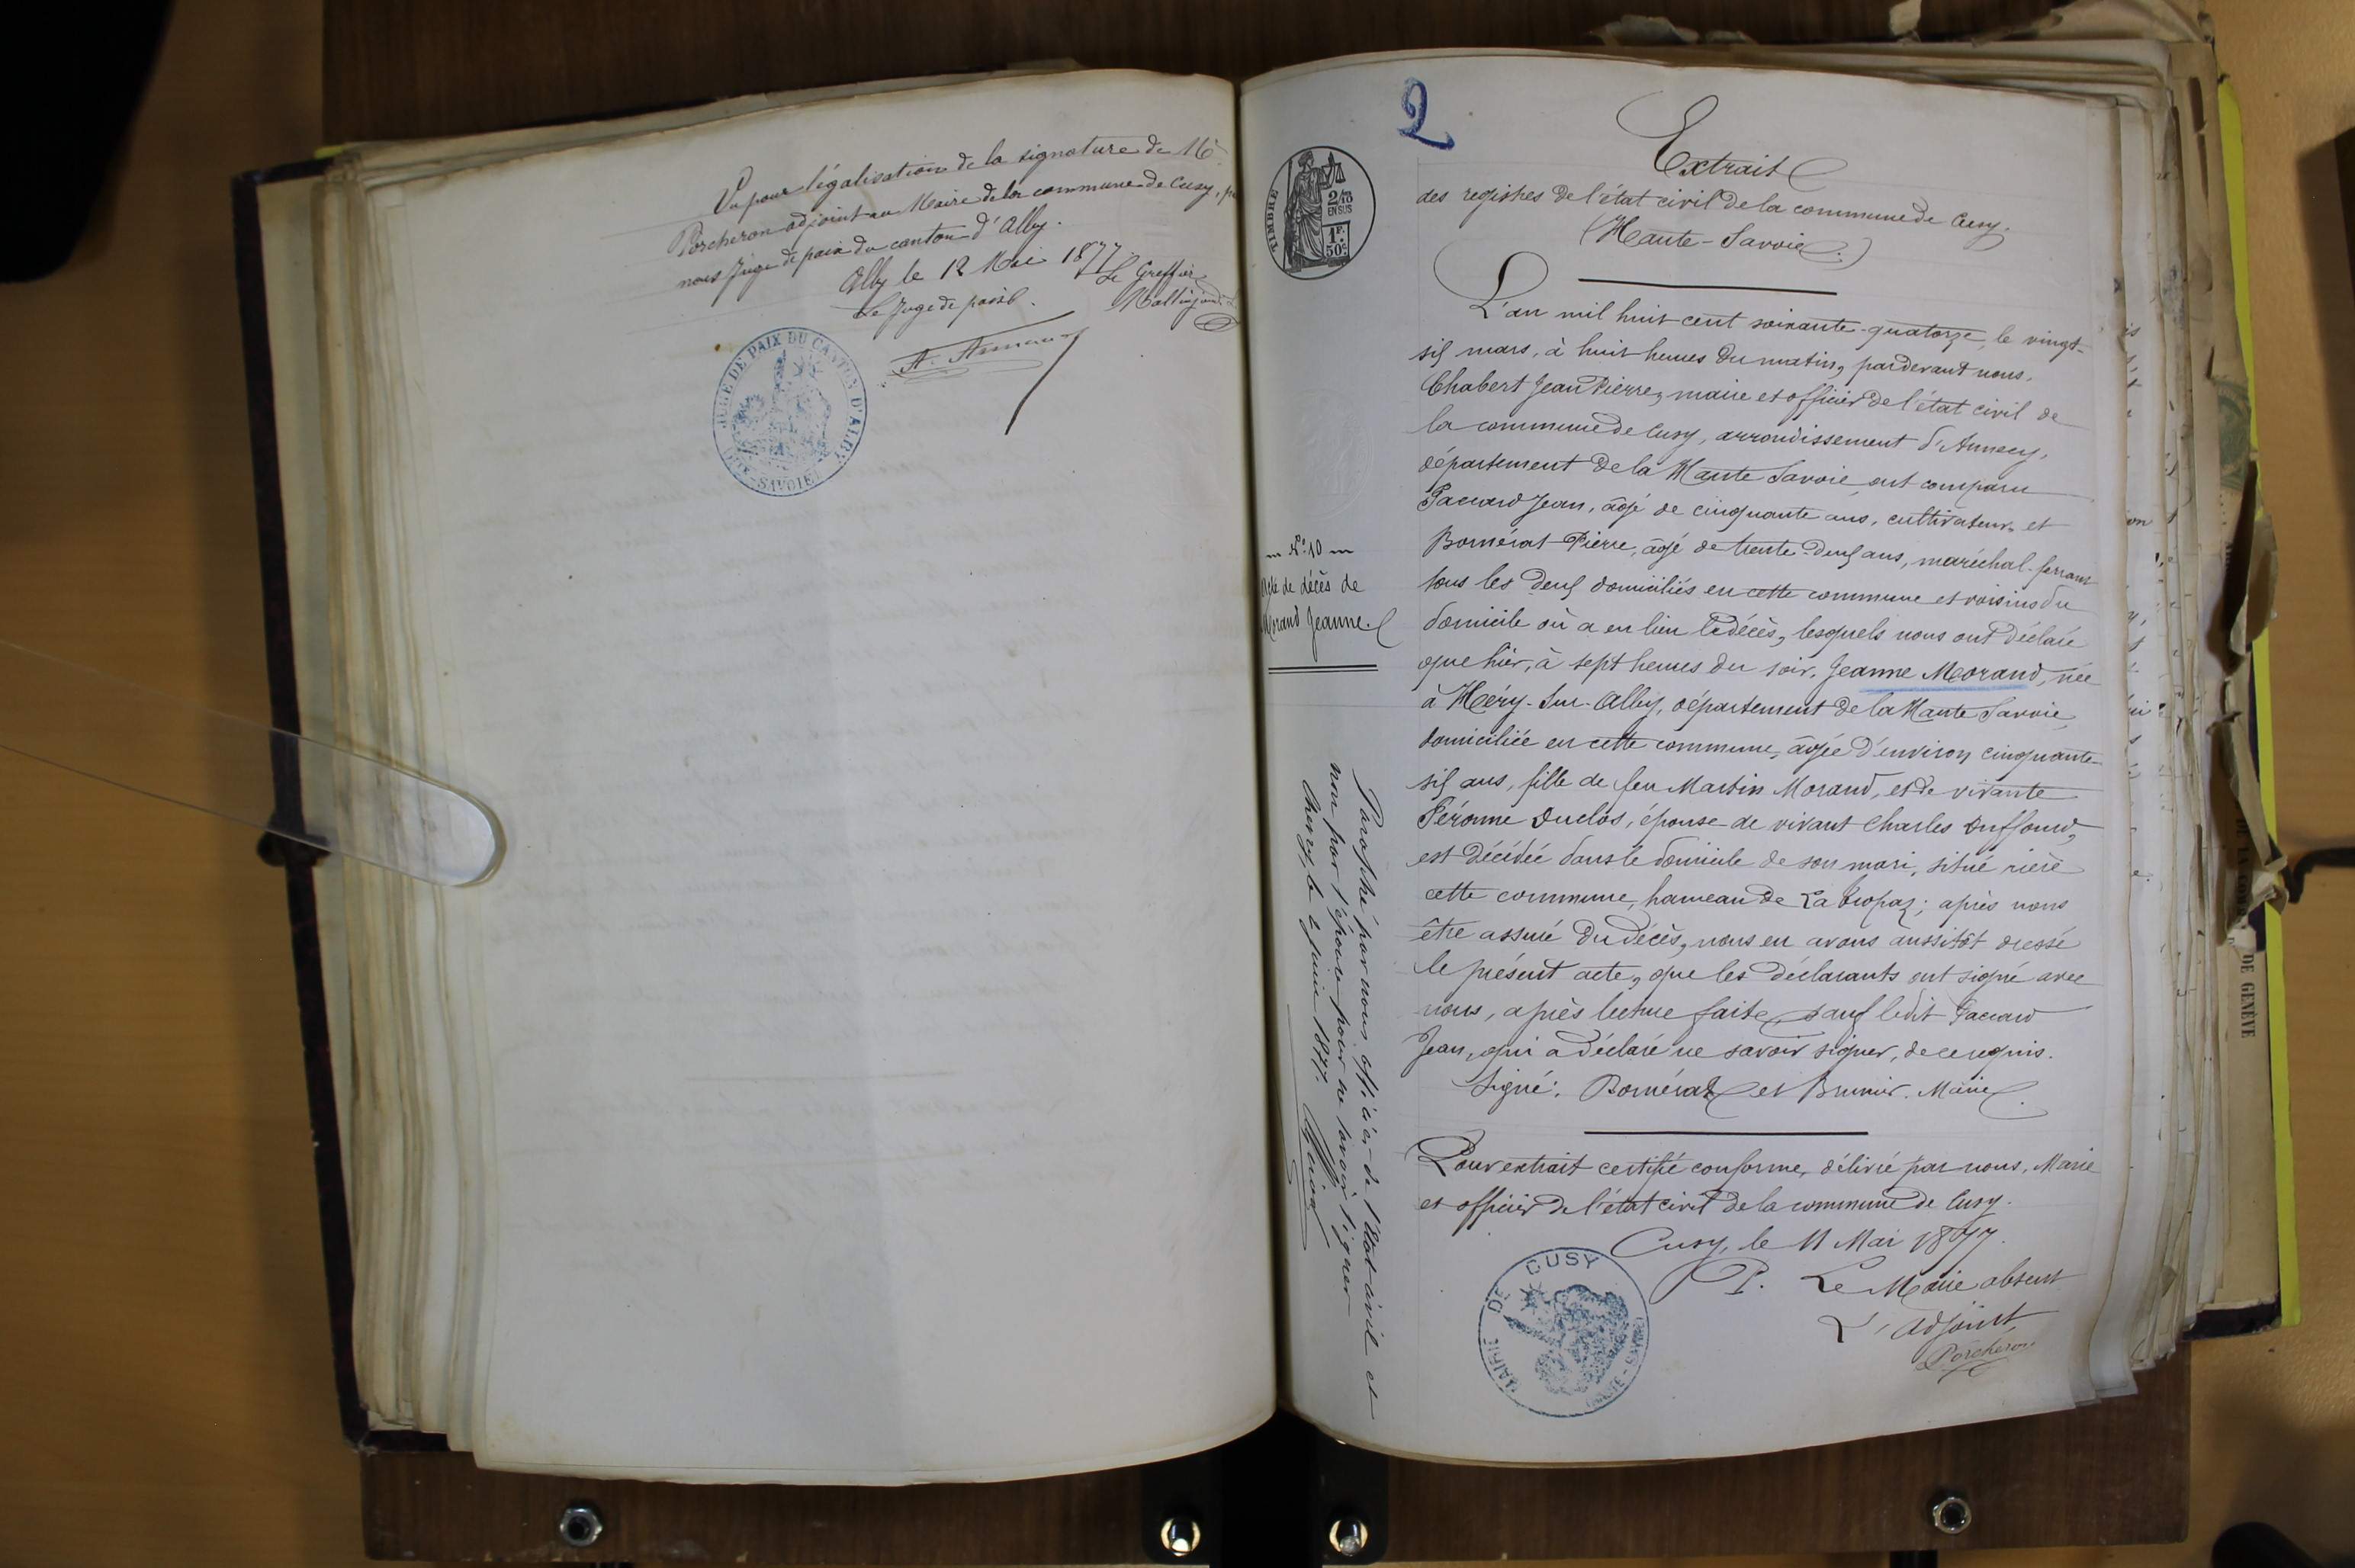 Vu pour légalisation de la signature de Mr
Porcheron adjoint au Maire de la commune de Cusy, par
nous Juge de paix du canton d'Alby.
Alby le 12 Mai 1877.
Le Juge de paix
Le Greffier
JUGE DE PAIX DU CANTON D'ALBY
HTE-SAVOIE
2
TIMBRE
2/10
EN SUS
1F.
50c
Extrait
des registres de l'état civil de la commune de Cusy.
(Haute-Savoie.)
L'an mil huit cent soixante-quatorze, le vingt-
six mars, à huit heures du matin, pardevant nous,
Chabert Jean Pierre, maire et officier de l'état civil de
la commune de Cusy, arrondissement d'Annecy,
département de la Haute Savoie, ont comparu
Paccard Jean, âgé de cinquante ans, cultivateur, et
Bornérat Pierre, âgé de trente-deux ans, maréchal-ferrant
tous les deux domiciliés en cette commune et voisins du
domicile où a eu lieu le décès, lesquels nous ont déclaré
que hier, à sept heures du soir, Jeanne Morand, née
à Héry-Sur-Alby, département de la Haute Savoie,
domiciliée en cette commune, âgée d'environ cinquante-
six ans, fille de feu Martin Morand, et de vivante
Péronne Duclos, épouse de vivant Charles Duffourd,
est décédée dans le domicile de son mari, situé rière
cette commune, hameau de La Propaz; après nous
être assuré du décès, nous en avons aussitôt dressé
le présent acte, que les déclarants ont signé avec
nous, après lecture faite, sauf ledit Paccard
Jean, qui a déclaré ne savoir signer, de ce requis.
Signé: Bornérat et Brunier. Maire.
Pour extrait certifié conforme, délivré par nous, Maire
et officier de l'état civil de la commune de Cusy.
Cusy, le 11 Mai 1877.
P. Le Maire absent
L'adjoint
Porcheron
MAIRIE DE CUSY
HAUTE-SAVOIE
N° 10
Acte de décès de
Morand Jeanne.
Paraphé par nous officier de l'Etat civil et
non par l'épouse pour ne savoir signer
Chenex, le 2 juin 1877.
DE GENÈVE